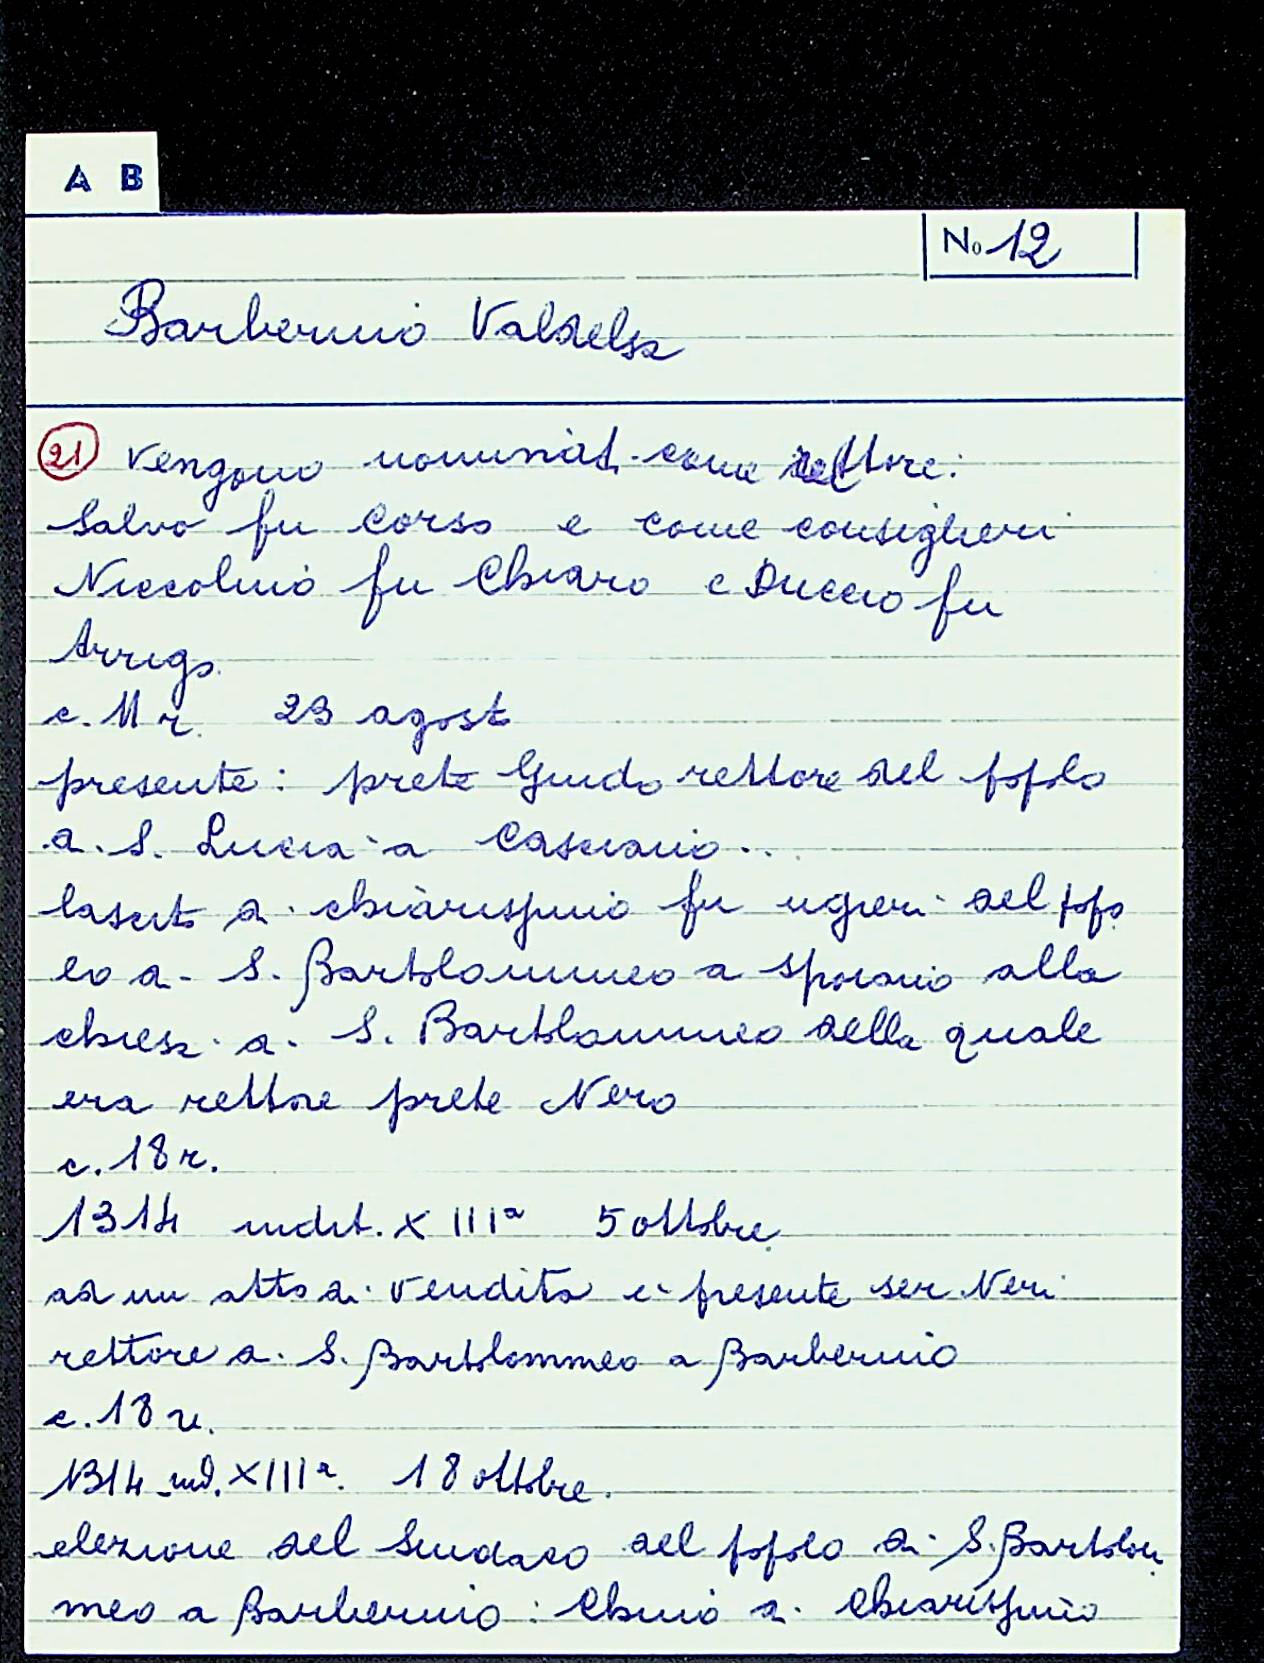 A B
No 12
Barberino Valdelsa
21 Vengono nominati come rettore:
Salvo fu Corso e come consiglieri
Niccolino fu Chiaro e Duccio fu
Arrigo.
c. 11 r. 23 agosto
presente: prete Guido rettore del popolo
di S. Lucia a Casciano..
lascito di chiarispino fu ugieri del popo
lo di S. Bartolommeo a Spoiano alla
chiesa di S. Bartolommeo della quale
era rettore prete Nero
c. 18 r.
1314 indit. XIIIa 5 ottobre
ad un atto di vendita è presente ser Neri
rettore di S. Bartolommeo a Barberino
c. 18 v.
1314 ind. XIIIa. 18 ottobre.
elezione del Sindaco del popolo di S. Bartolom
meo a Barberino: Chino di Chiarispino